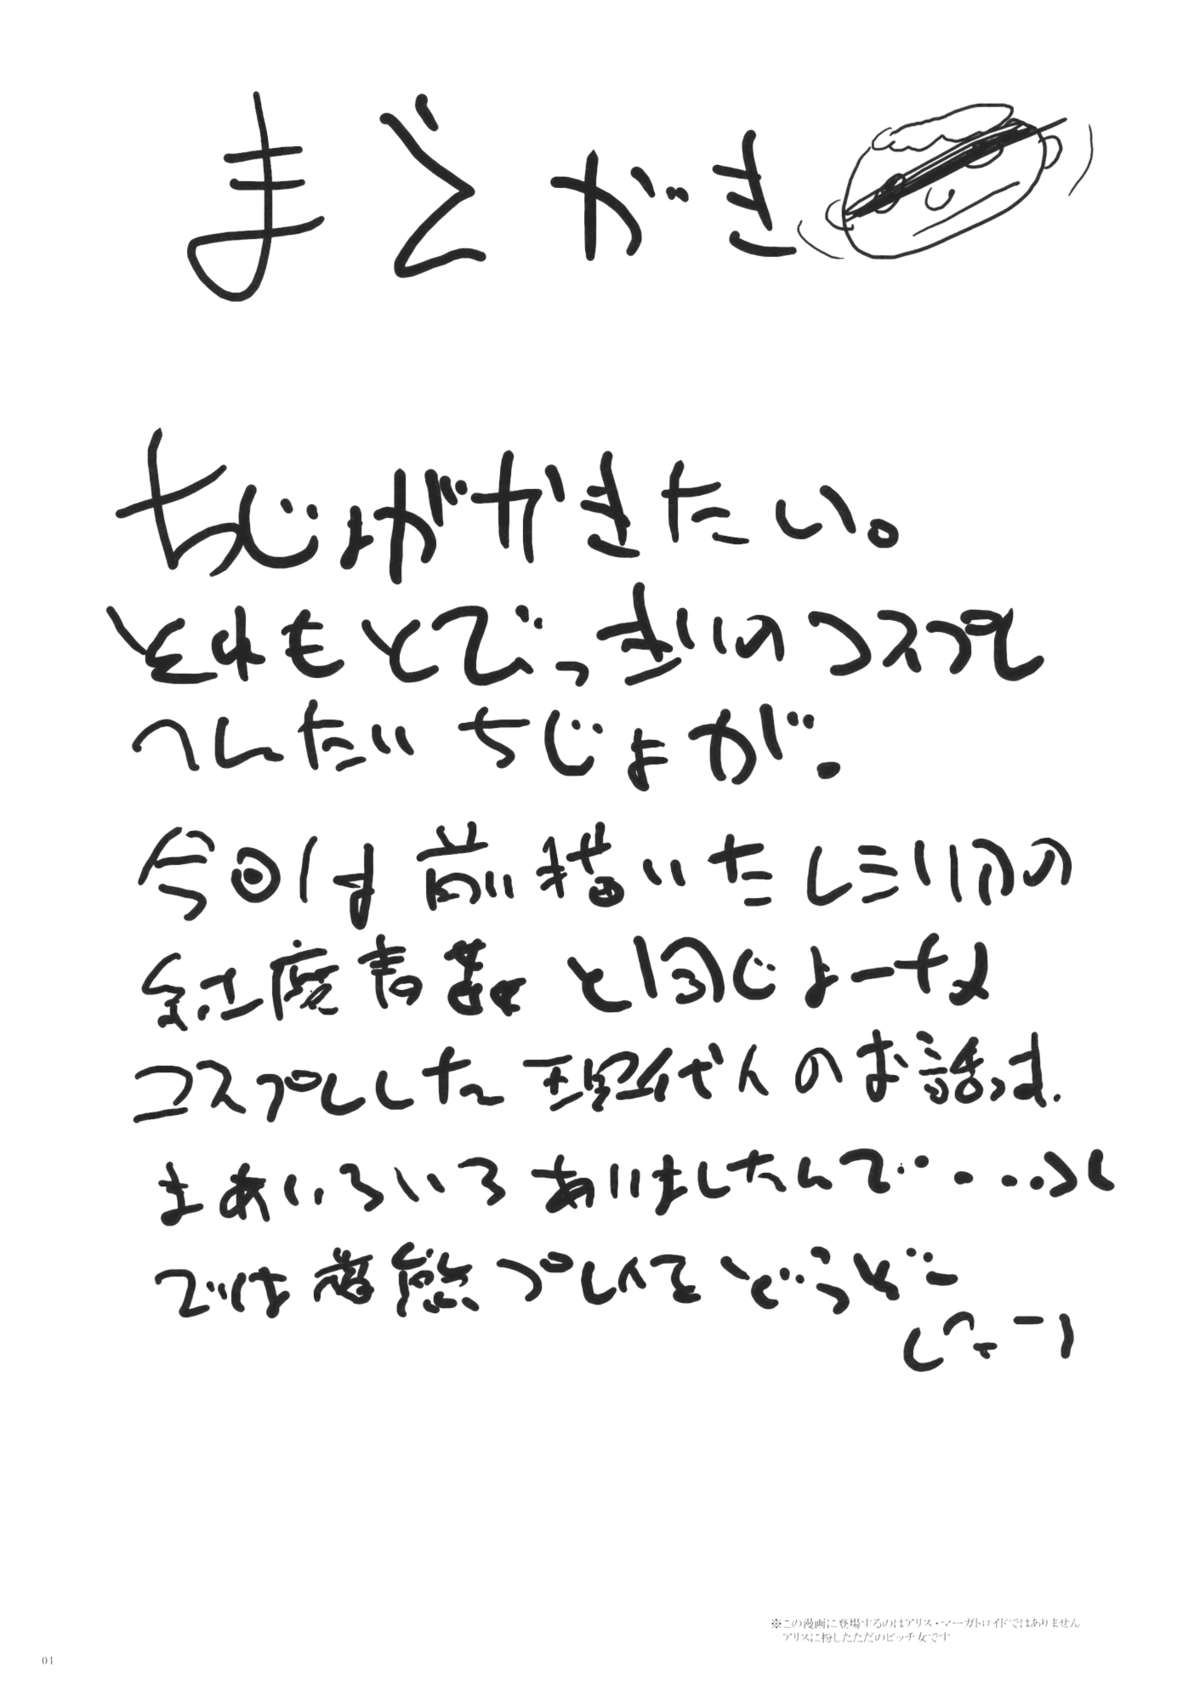 まえがき
ちじょがかきたい。
それもとびっきりのコスプレ
へんたいちじょが。
今回は前描いたレミリアの
と同じよーな
コスプレした現代人のお話っす.
まあいろいろありましたんで・・・・
では プレイをどうぞー
※この漫画に登場するのはアリス・マーガトロイドではありません
アリスに扮したただのビッチ女です
01